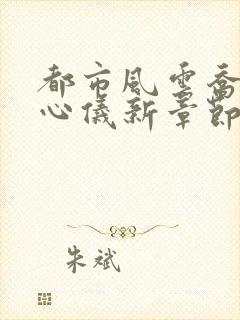 都市風雲喬
心儀新章節
朱斌